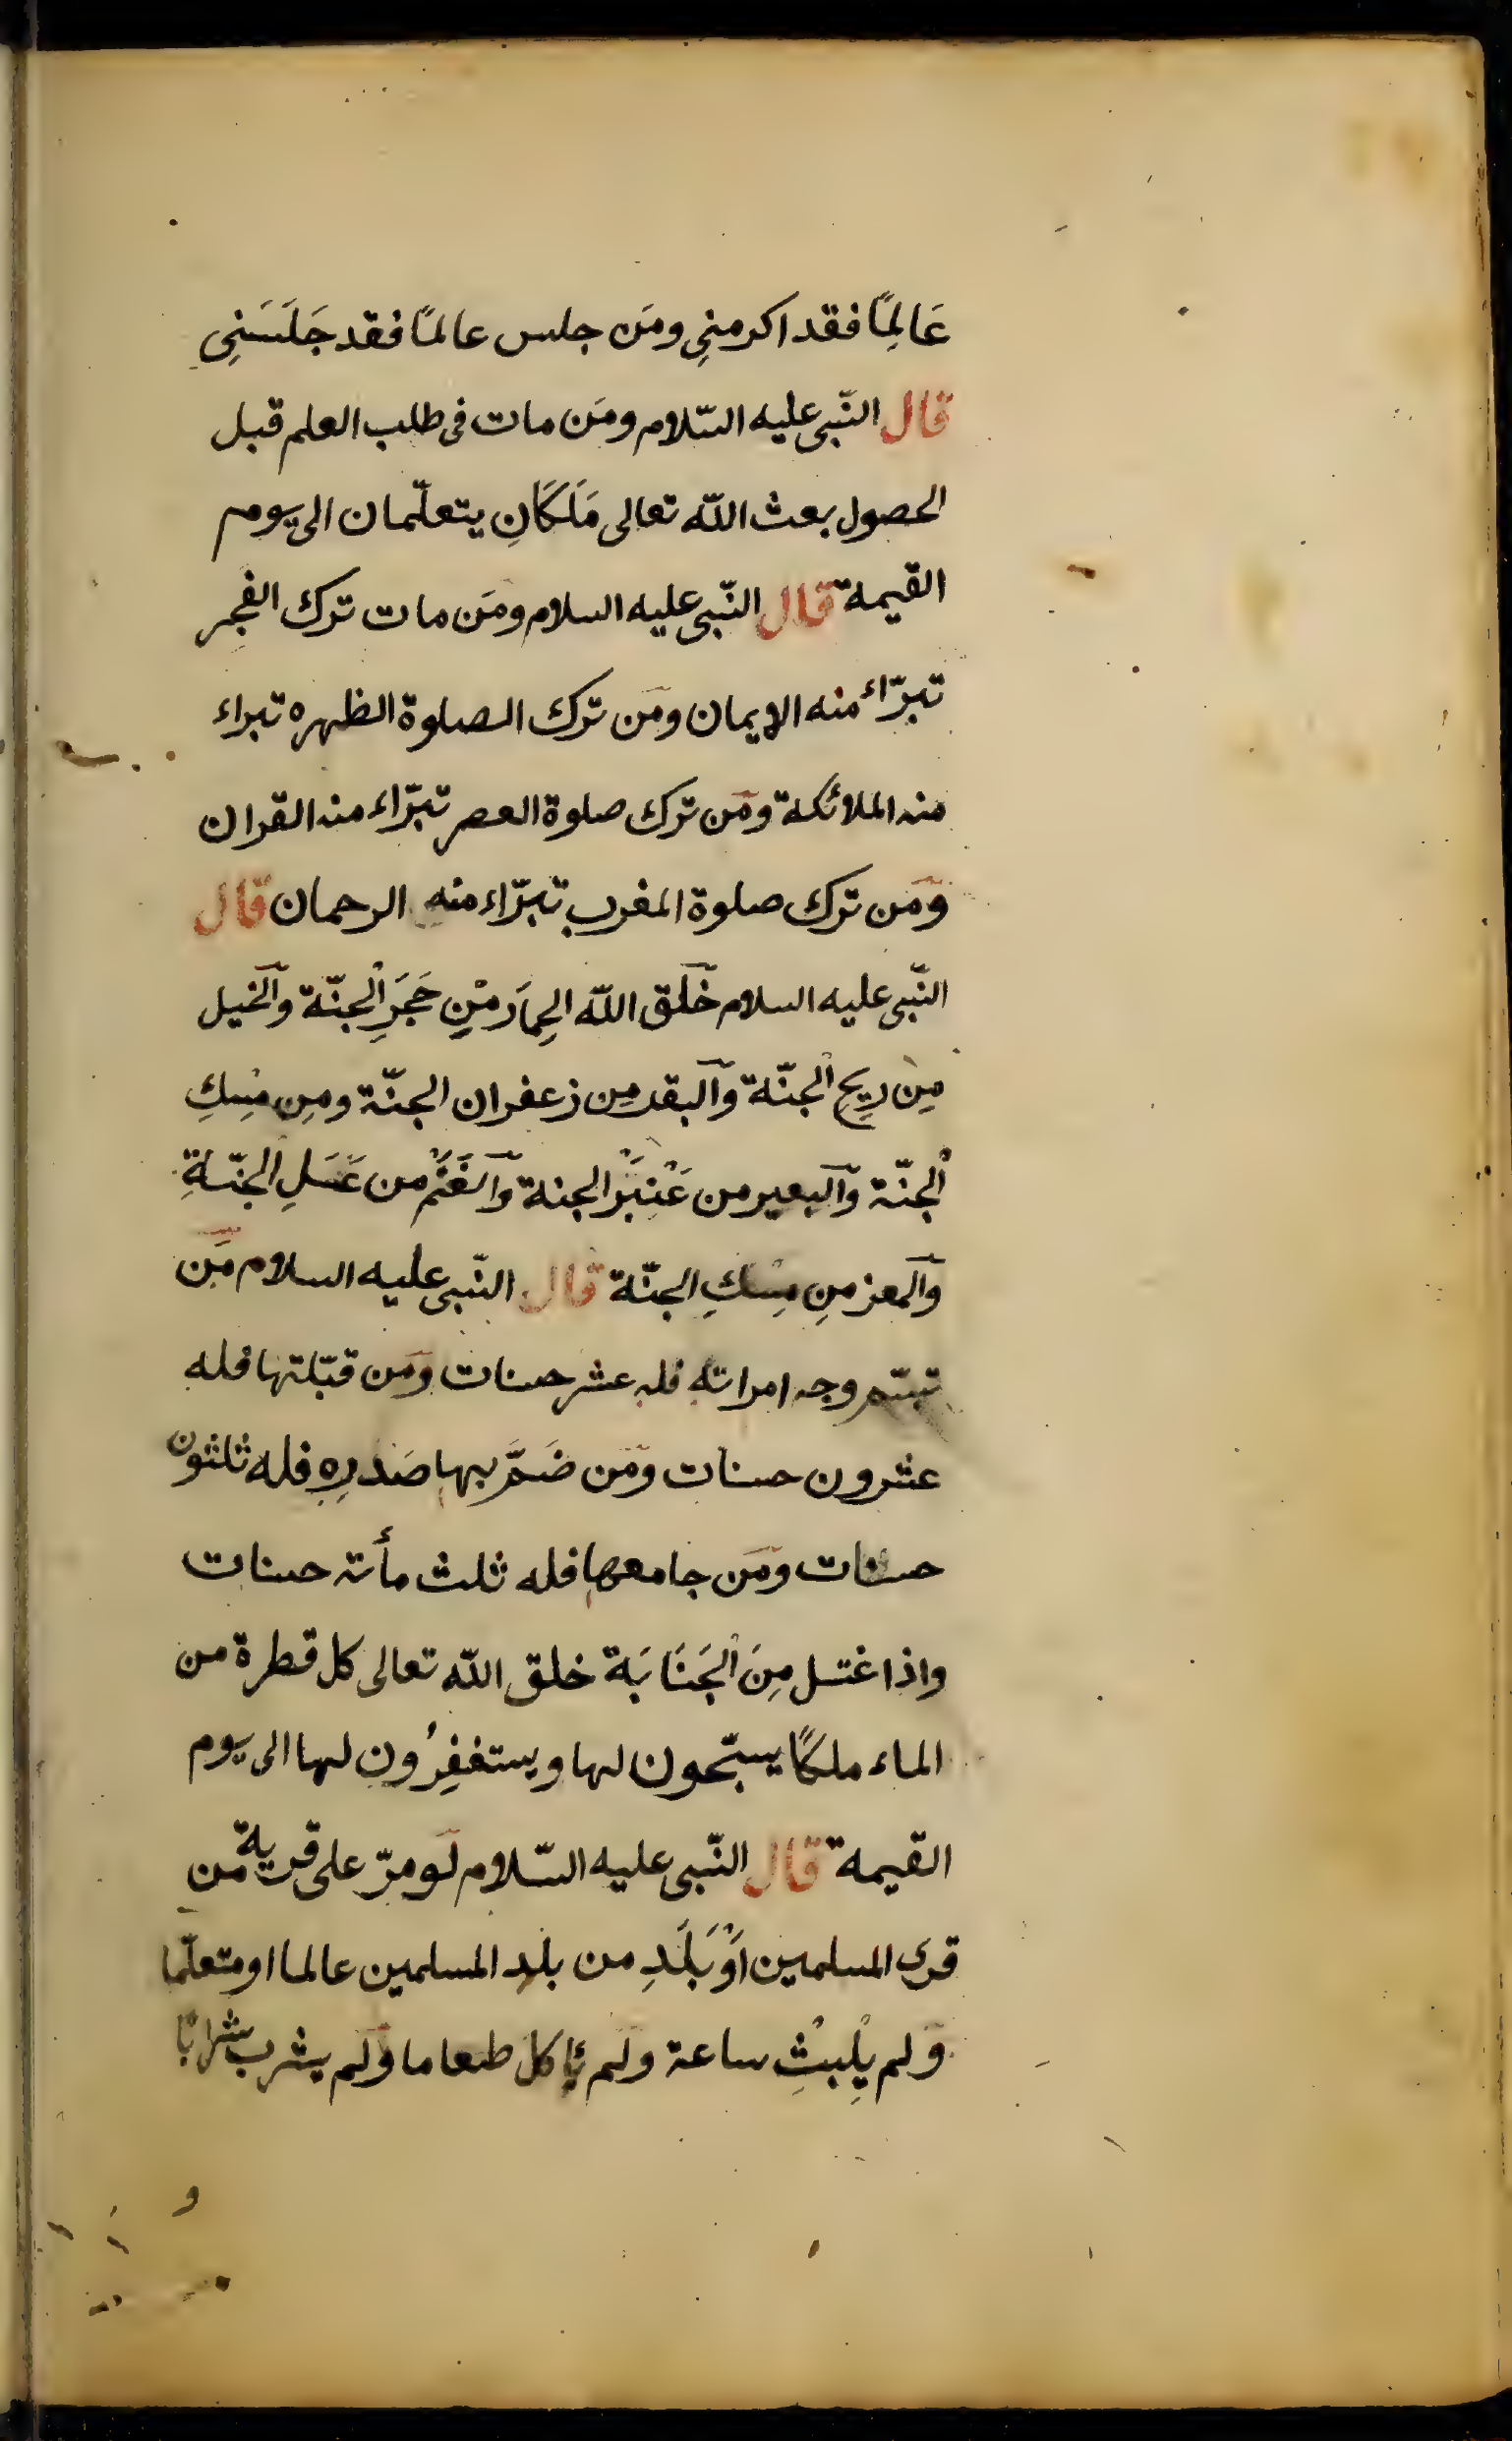 عَالِمًا فقد اكرمنِي ومَن جلس عالمًا فقد جَلَسَنِي
قال النّبى عليه السّلام ومَن مات فى طلب العلم قبل
الحصول بعث اللّه تعالى مَلَكَانِ يتعلّمان الى يوم
القيمة قال النّبى عليه السلام ومَن مات ترك الفجرِ
تبرّاء منه الايمان ومَن ترك الصلوة الظهره تبراء
منه الملائكة ومَن ترك صلوة العصر تبرّاء منه القران
ومَن ترك صلوة المغرب تبرّاء منه الرحمان قال
النّبى عليه السلام خَلَق اللّه الحِمارَ مْنِ حَجَرِ الْجنّة والخيل
مِن رِيحِ الْجنّة والبقر مِن زعفران الجنّة ومِن مِسِكِ
الْجنّة والبعير من عَنْبَرْ الجنة والغَنَمْ من عَسَلِ الجنّةِ
والمعز مِن مِسْكِ الجنّة قال النّبى عليه السلام مَن
تبسّم وجه امراته فله عشر حسنات ومَن قبّلتها فله
عشرون حسنات ومَن ضَمَّ بها صَدرِهِ فله ثلثون
حسنات ومَن جامعها فله ثلث مأته حسنات
واذا غتسل مِنَ الْجَنَابَة خلق اللّه تعالى كل قطرة من
الماء ملكًا يسبّحون لها ويستغفِرُون لها الى يوم
القيمة قال النّبى عليه السّلام لَو مرّ على قرية من
قرى المسلمين اَوْ بَلَدِ من بلد المسلمين عالما او متعلّما
وَلم يِلْبثِْ ساعة ولم يأكل طعاما ولم يشرب شرابًا
و